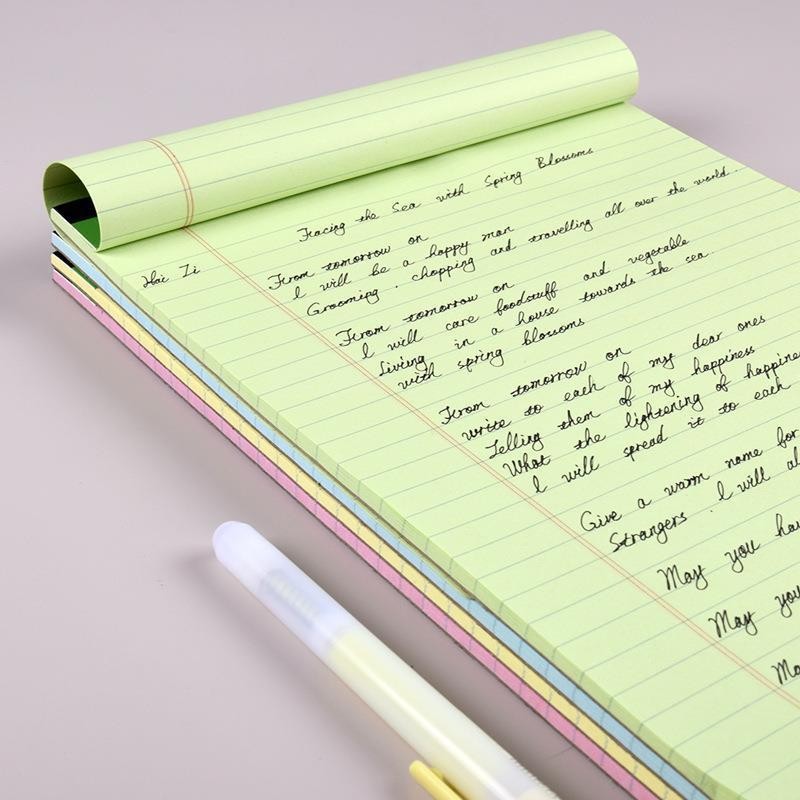 Facing the Sea with Spring Blossoms
Hai Zi
From tomorrow on
I will be a happy man
Grooming . chopping and travelling all over the world.
From tomorrow on
I will care foodstuff and vegetable
Living in a house towards the sea.
with spring blossoms
From tomorrow on
write to each of my dear ones
Telling them of my happiness
What the lightening of happine
I will spread it to each
Give a warm name for
Strangers . I will al
May you ha
May you
Ma